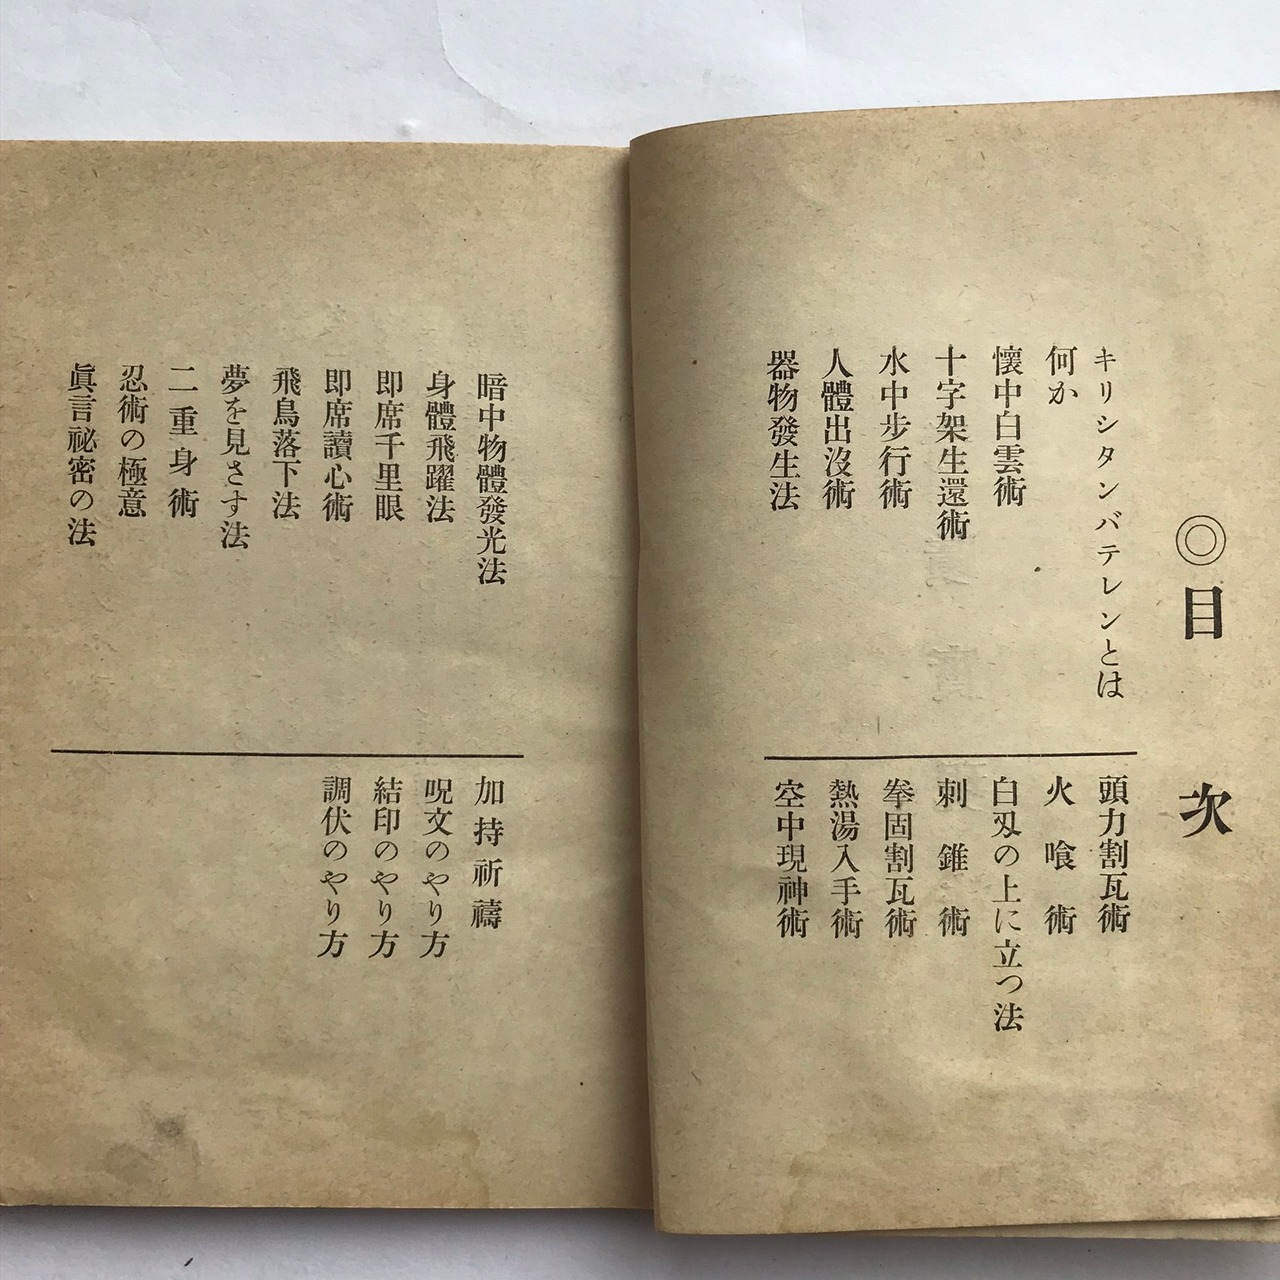 ◎目次
キリシタンバテレンとは
何か
懷中白雲術
十字架生還術
水中步行術
人體出沒術
器物發生法
頭力割瓦術
火喰術
白刄の上に立つ法
刺錐術
拳固割瓦術
熱湯入手術
空中現神術
暗中物體發光法
身體飛躍法
即席千里眼
即席讀心術
飛鳥落下法
夢を見さす法
二重身術
忍術の極意
眞言祕密の法
加持祈禱
呪文のやり方
結印のやり方
調伏のやり方